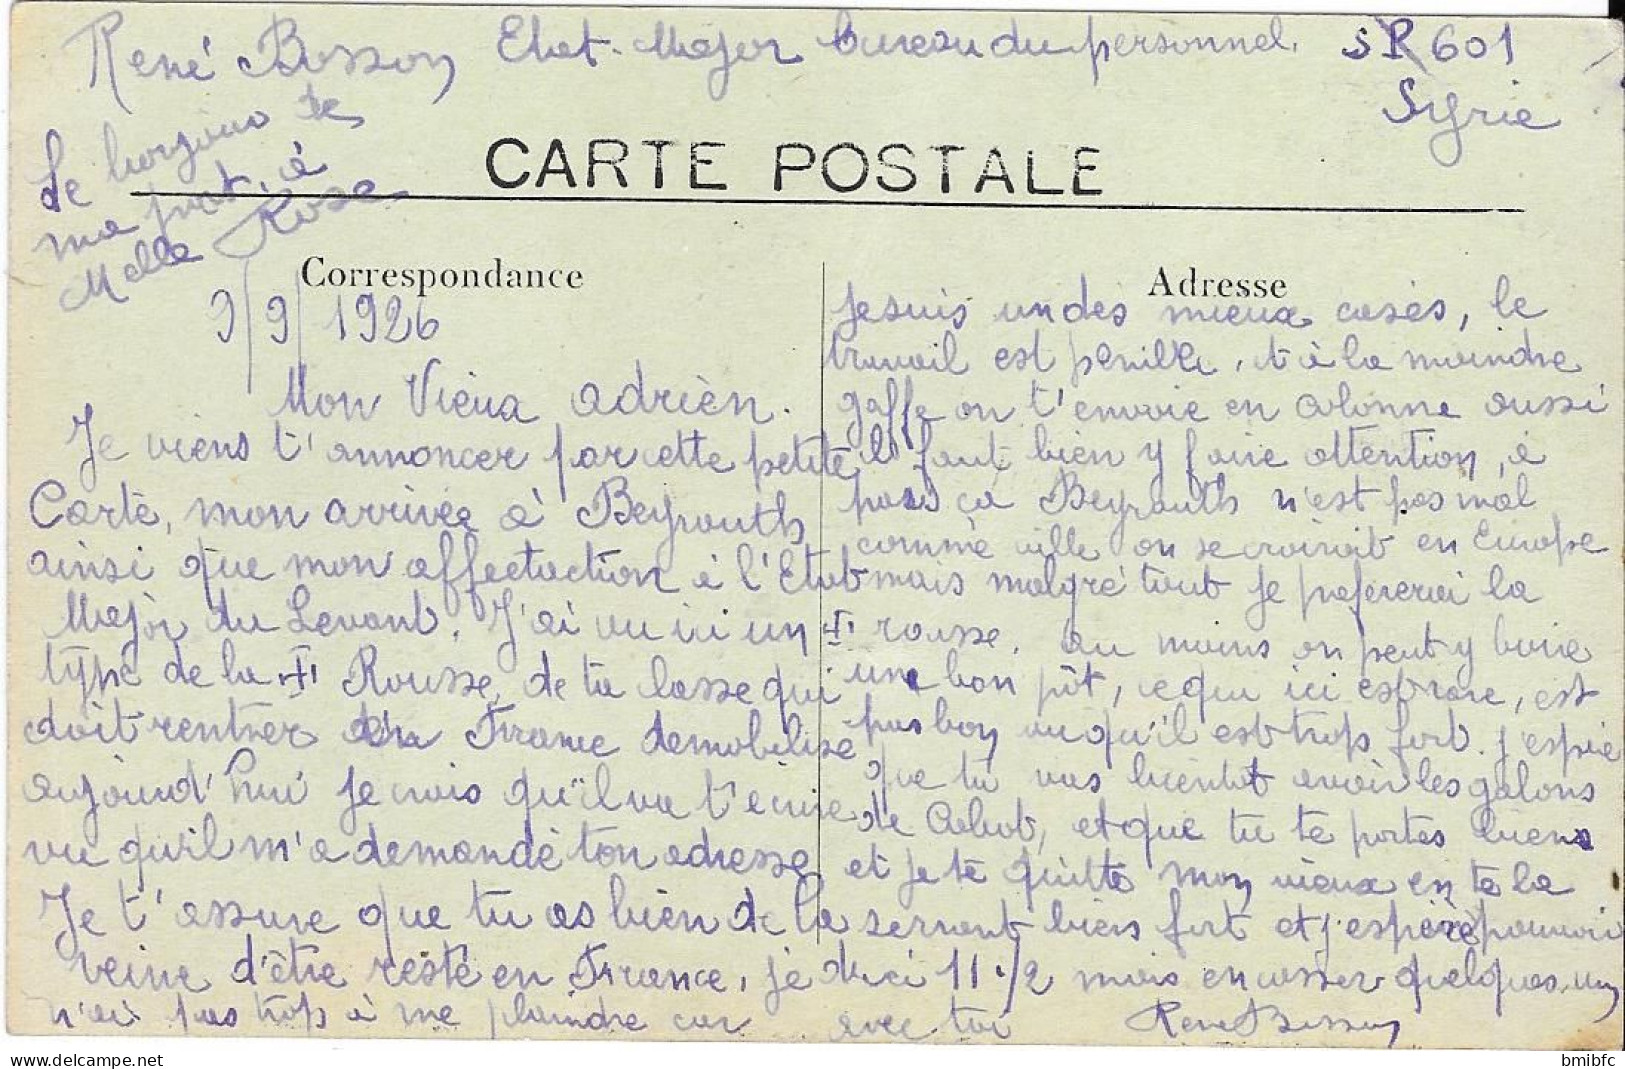 René Bosson Etat-Major bureau du personnel. SP 601
Syrie
le bonjour de
ma part à
Melle Rose
CARTE POSTALE
Correspondance
9/9/1926
Mon Vieux adrien.
Je viens t'annoncer par cette petite
Carte, mon arrivée à Beyrouth
ainsi que mon affectaction à l'Etat
Major du Levant. J'ai vu ici un
type de la + Rousse, de ta classe qui
doit rentrer en France demobilise
aujourd'hui je crois qu'il va t'ecrire
vu qu'il m'a demandé ton adresse
Je t'assure que tu as bien de la
veine d'être resté en France, je
n'ai pas trop à me plaindre car
Adresse
Je suis un des mieux casés, le
travail est penible, et à la moindre
gaffe on t'envoie en colonne aussi
il faut bien y faire attention, à
pars ça Beyrouth n'est pas mal
comme ville on se croirait en Europe
mais malgré tout je prefererai la
+ rousse, au moins on peut y boire
une bon pôt, ce qui ici est rare, est
pas bon vu qu'il est trop fort. j'espère
que tu vas bientot avoir les galons
de Cabot, et que tu te portes biens
et je te quitte mon vieux en te la
serrant bien fort et j'espère pouvoir
d'ici 11 1/2 mois en casser quelques un
avec toi René Bosson
bmibfc